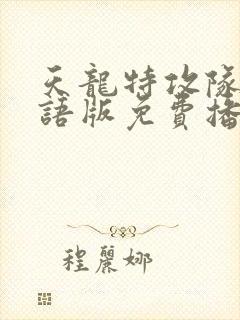 天龍特攻隊
語版免費播
程麗娜